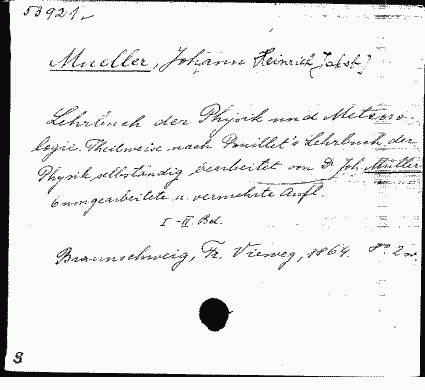 53921
Mueller, Johann Heinrich Jakob
Lehrbuch der Physik und Meteoro-
logie. Theilweise nach Pouillet's Lehrbuch der
Physik selbständig bearbeitet von Dr Joh. Müller
6 umgearbeitete u. vermehrte Aufl.
I-II. Bd.
Braunschweig, Fr. Vieweg, 1864. 8° 2
S